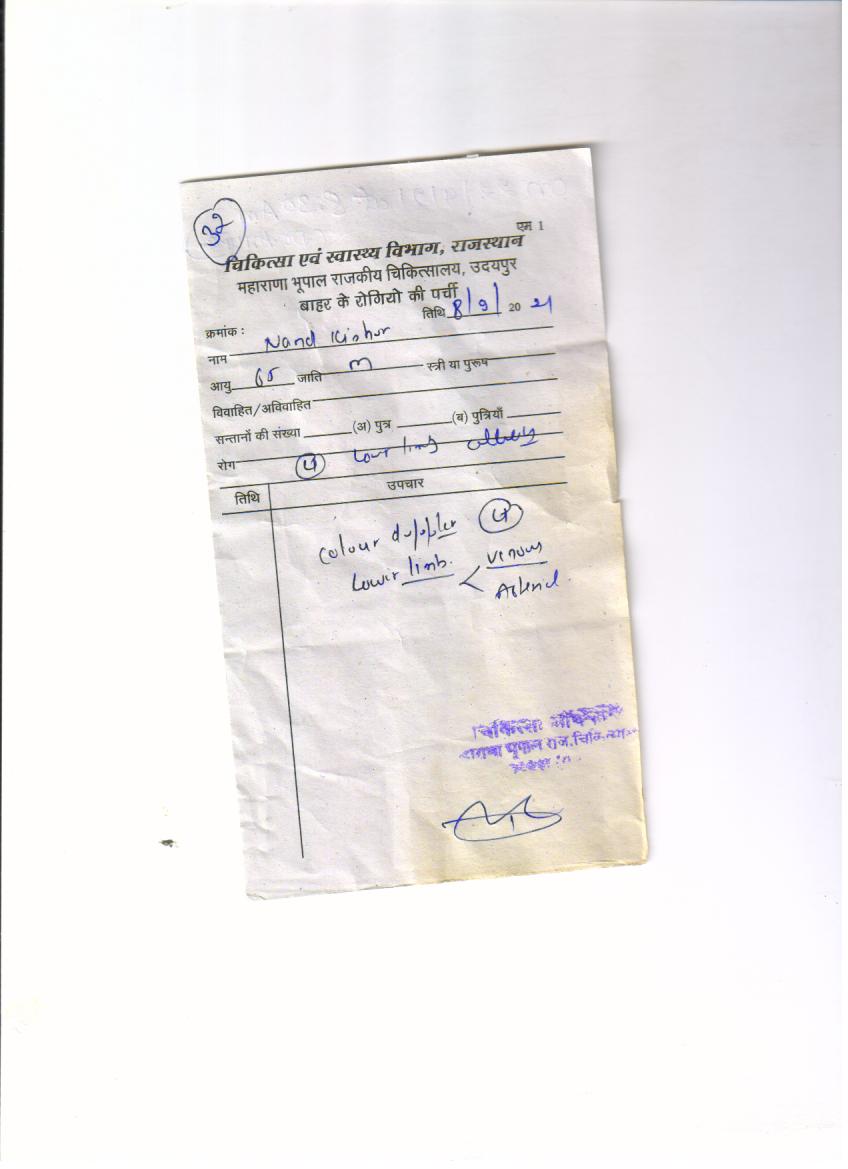 32
एम 1
चिकित्सा एवं स्वास्थ्य विभाग, राजस्थान
महाराणा भूपाल राजकीय चिकित्सालय, उदयपुर
बाहर के रोगियो की पर्ची
तिथि 8/9/ 20 21
क्रमांक :
नाम Nand Kishor
आयु 65 जाति m स्त्री या पुरूष
विवाहित/अविवाहित
सन्तानों की संख्या (अ) पुत्र (ब) पुत्रियाँ
रोग limb
तिथि उपचार
Colour doppler
Lower limb. < venous
Arterial
भूपाल राज.